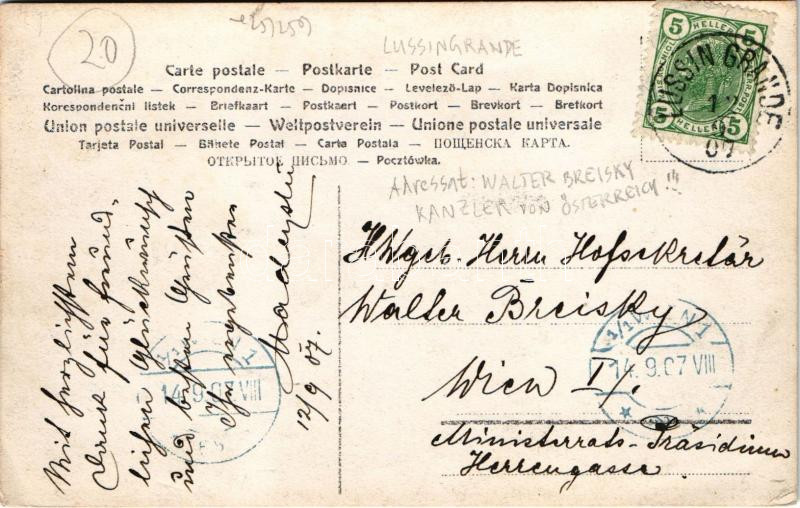 20
LUSSINGRANDE
Carte postale — Postkarte — Post Card
Cartolina postale — Correspondenz-Karte — Dopisnice — Levelező-Lap — Karta Dopisnica
Korespondenční listek — Briefkaart — Postkaert — Postkort — Brevkort — Bretkort
Union postale universelle — Weltpostverein — Unione postale universale
Tarjeta Postal — Bilhete Postal — Carta Postala — ПОЩЕНСКА КАРТА.
ОТКРЫТОЕ ПИСЬМО — Pocztówka.
5 HELLER 5
5 HELLER 5
LUSSIN GRANDE
07
Adressat: WALTER BREISKY
KANZLER VON ÖSTERREICH!!!
HWgeb. Herrn Hofsekretär
Walter Breisky
Wien I/.
Ministerrats-Präsidium
Herrengasse
1/1 WIEN 1
14.9.07 VIII
Mit herzlichstem
Dank für freund-
lichen Glückwunsch
und besten Grüßen
Ihr ergebenster
Madeyski
12/9 07.
14.9.07 VIII